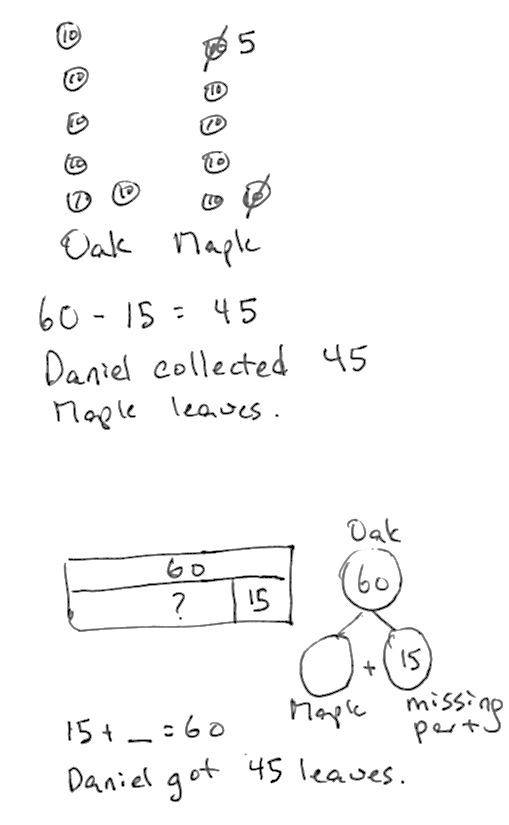 10 10 5
10 10
10 10
10 10
10 10 10 10
Oak Maple
60 - 15 = 45
Daniel collected 45
Maple leaves.
Oak
60 60
? 15
+ 15
Maple missing
part
15 + _ = 60
Daniel got 45 leaves.